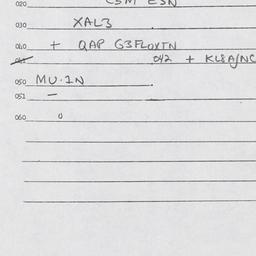 020 CSM ESN
030 XAL3
040 + QAP G3FLOXTN
041 042 + KL8A/NC
050 MU.1N
051 —
060 0